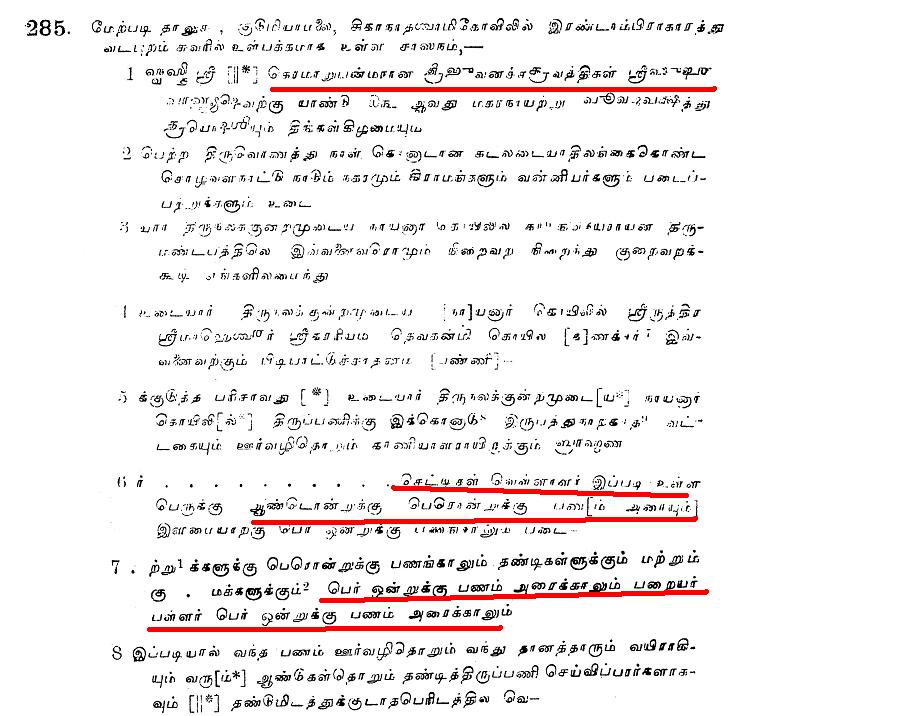 285. மேற்படி தாலுகா, குடுமியாமலை, சிகாநாதஸ்வாமிகோவிலில் இரண்டாம்பிராகாரத்து
வடபுறம் சுவரில் உள்பக்கமாக உள்ள சாஸநம்,—
1 ஸ்வஸ்திஸ்ரீ [||*] கொமாறுபன்மரான திரிபுவனச்சக்ரவத்திகள்
யாண்டு ஆவது மகரநாயற்று
திங்கள்கிழமையும்
2 பெற்ற திருவொணத்து நாள் கொனாடான கடலடையாதிலங்கைகொண்ட
சொழவளநாட்டு நாடும் நகரமும் கிராமங்களும் வன்னியர்களும் படைப்-
பற்றுக்களும் உடை
3 யார் திருநலக்குன்றமுடைய நாயனார் கொயிலில் திரு-
மண்டபத்திலே இவ்வனைவரொமும் நிறைவற நிறைந்து குறைவறக்-
கூடி எங்களிலிசைந்து
4 உடையார் திருநலக்குன்றமுடைய [நா]யனார் கொயிலில் ஸ்ரீருத்திர
ஸ்ரீமாஹேஸ்வரர் ஸ்ரீகாரியம் தெவகன்மி கொயில் [க]ணக்கர் இவ்-
வனைவற்கும் பிடிபாட்டுச்சாதனம் [பண்ணி]-
5 க்குடுத்த பரிசாவது [*] உடையார் திருநலக்குன்றமுடை[ய*] நாயனார்
கொயிலி[ல்*] திருப்பணிக்கு இக்கொனாடு இருபத்துநாற்காத வட்-
டகையும் ஊர்வழிதொறும் காணியாளராயிருக்கும் ப்ராஹ்மண
6 ர் . . . . . . . . . . செட்டிகள் வெள்ளாளர் இப்படி உள்ள
பெருக்கு ஆண்டொன்றுக்கு பெரொன்றுக்கு பண[ம் அரையும்]
இளமையாற்கு பெர் ஒன்றுக்கு பணங்காலும் படை-
7 . ற்று¹ க்களுக்கு பெரொன்றுக்கு பணங்காலும் தண்டிகள்ளுக்கும் மற்றும்
கு . மக்களுக்கும்² பெர் ஒன்றுக்கு பணம் அரைக்காலும் பறையர்
பள்ளர் பெர் ஒன்றுக்கு பணம் அரைக்காலும்
8 இப்படியால் வந்த பணம் ஊர்வழிதொறும் வந்து தானத்தாரும் வயிராகி-
யும் வரு[ம்*] ஆண்கேள்தொறும் தண்டித்திருப்பணி செய்விப்பார்களாக-
வும் [||*] தண்டுமிடத்துக்குடாதபெரிடத்தில் வெ-